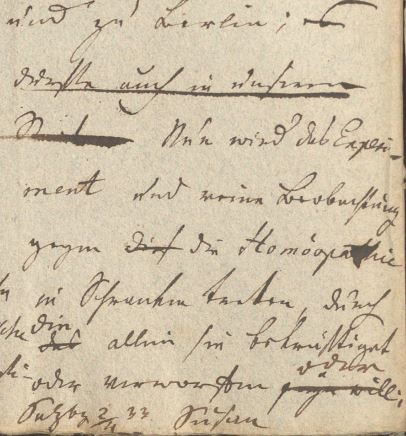 und zu Berlin; es
dürfte auch in unserem
Nun wird das Experi-
ment und reine Beobachtung
gegen die die Homöopathie
in Schranken treten, durch
die
das allein sie bekräftiget
oder
oder verworfen will;
Salzbg 2/4 33 Susan